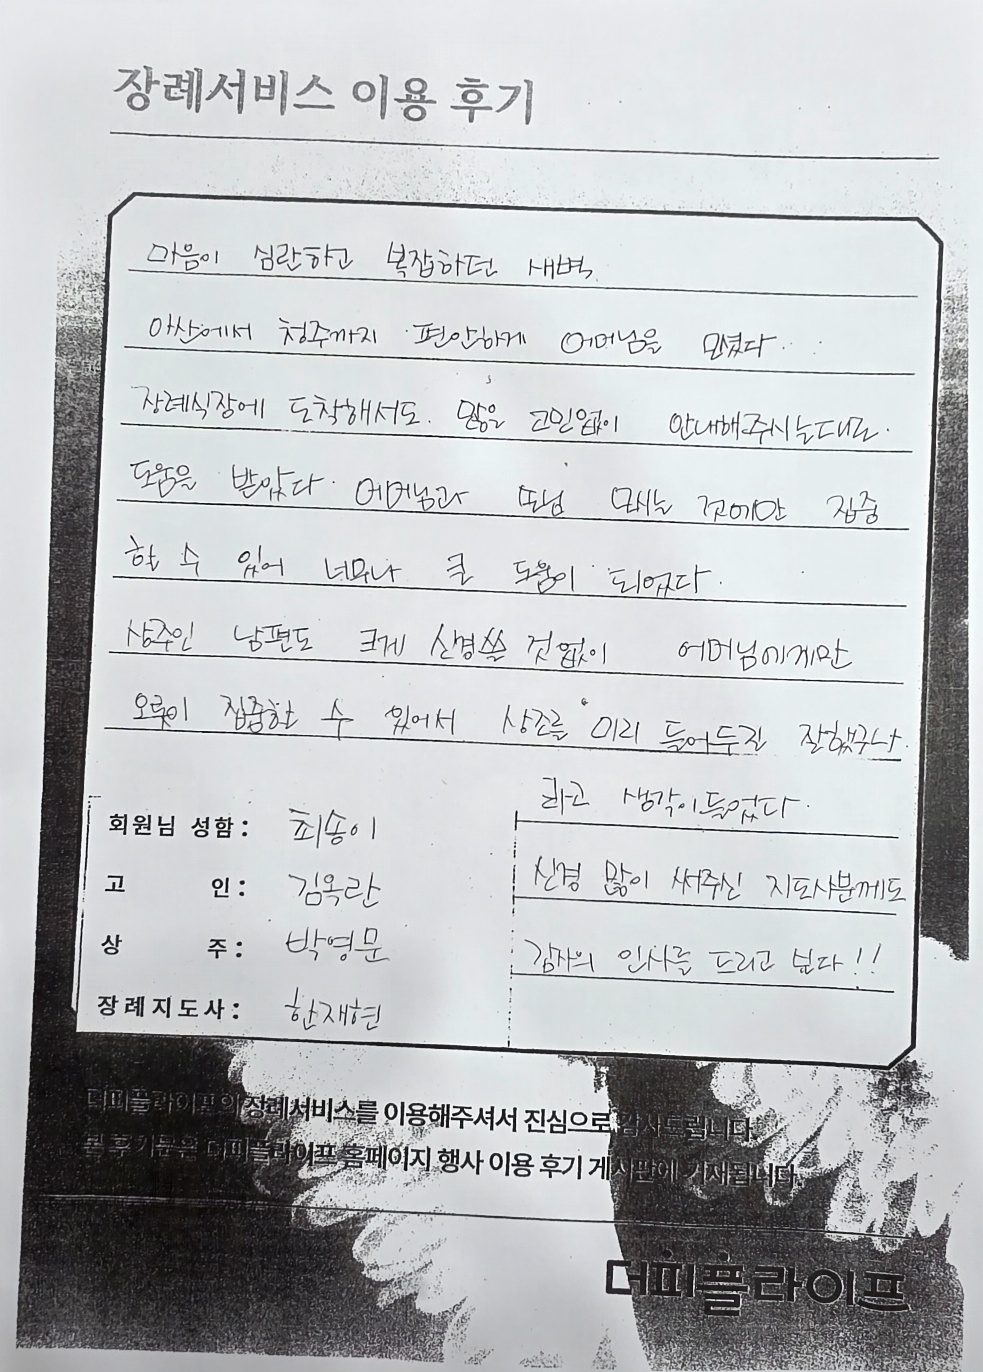 장례서비스 이용 후기
마음이 심란하고 복잡하던 새벽.
아산에서 청주까지 편안하게 어머님을 모셨다.
장례식장에 도착해서도. 많은 고민없이 안내해주시는대로.
도움을 받았다. 어머님과 모시는 것에만 집중
할 수 있어 너무나 큰 도움이 되었다.
상주인 남편도 크게 신경쓸 것 없이 어머님에게만
오롯이 집중할 수 있어서 상조를 미리 들어두길 잘했구나.
라고 생각이 들었다.
신경 많이 써주신 지도사분께도
감사의 인사를 드리고 싶다!!
회원님 성함: 최송이
고 인: 김옥란
상 주: 박영문
장례지도사: 한재현
더피플라이프의 장례서비스를 이용해주셔서 진심으로 감사드립니다.
본 후기문은 더피플라이프 홈페이지 행사 이용 후기 게시판에 기재됩니다.
더피플라이프